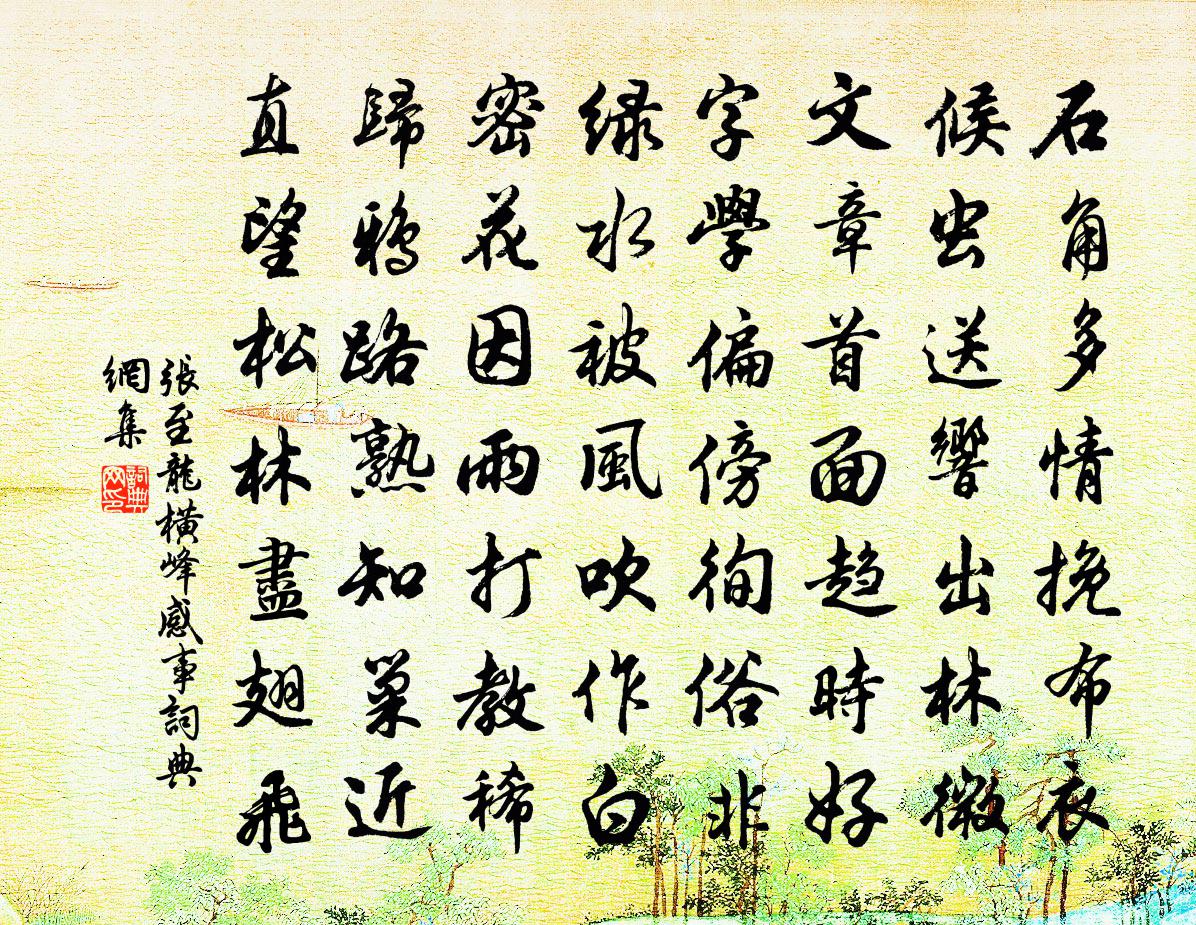 石角多情挽布衣
候虫送響出林微
文章首面趋時好
字學偏傍徇俗非
緑水被風吹作白
密花因雨打教稀
歸鴉路熟知巢近
直望松林盡翅飛
張至龍橫峰感事詞典
網集